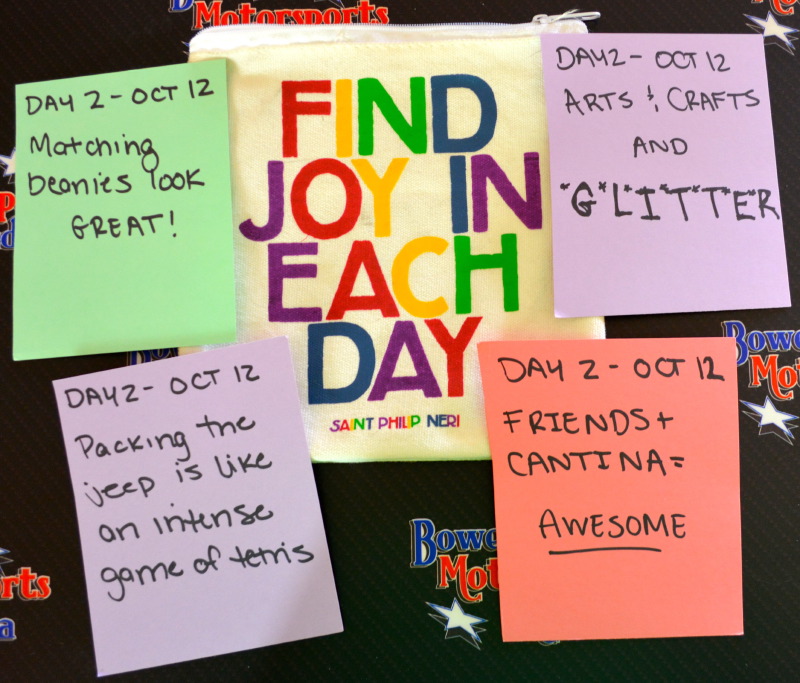 Motorsports
DAY 2 - OCT 12
Matching
beanies look
GREAT!
FIND
JOY IN
EACH
DAY
SAINT PHILIP NERI
DAY 2 - OCT 12
ARTS & CRAFTS
AND
*G*L*I*T*T*E*R
DAY 2 - OCT 12
Packing the
jeep is like
an intense
game of tetris
DAY 2 - OCT 12
FRIENDS +
CANTINA =
AWESOME